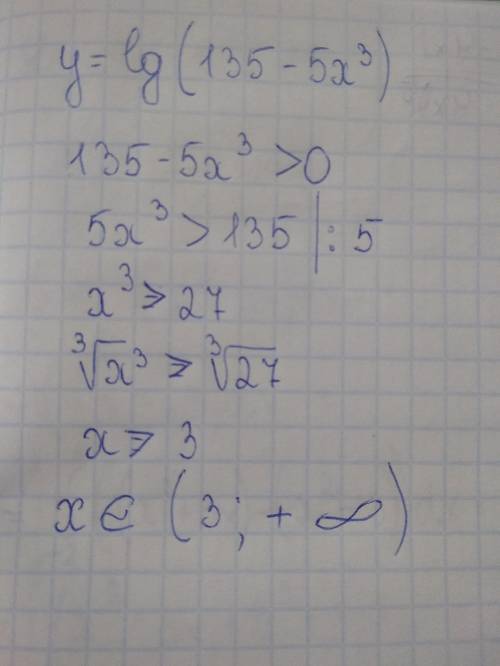 y = lg(135 - 5x³)
135 - 5x³ > 0
5x³ > 135 | : 5
x³ ⩾ 27
∛x³ ⩾ ∛27
x ⩾ 3
x ∈ (3; + ∞)